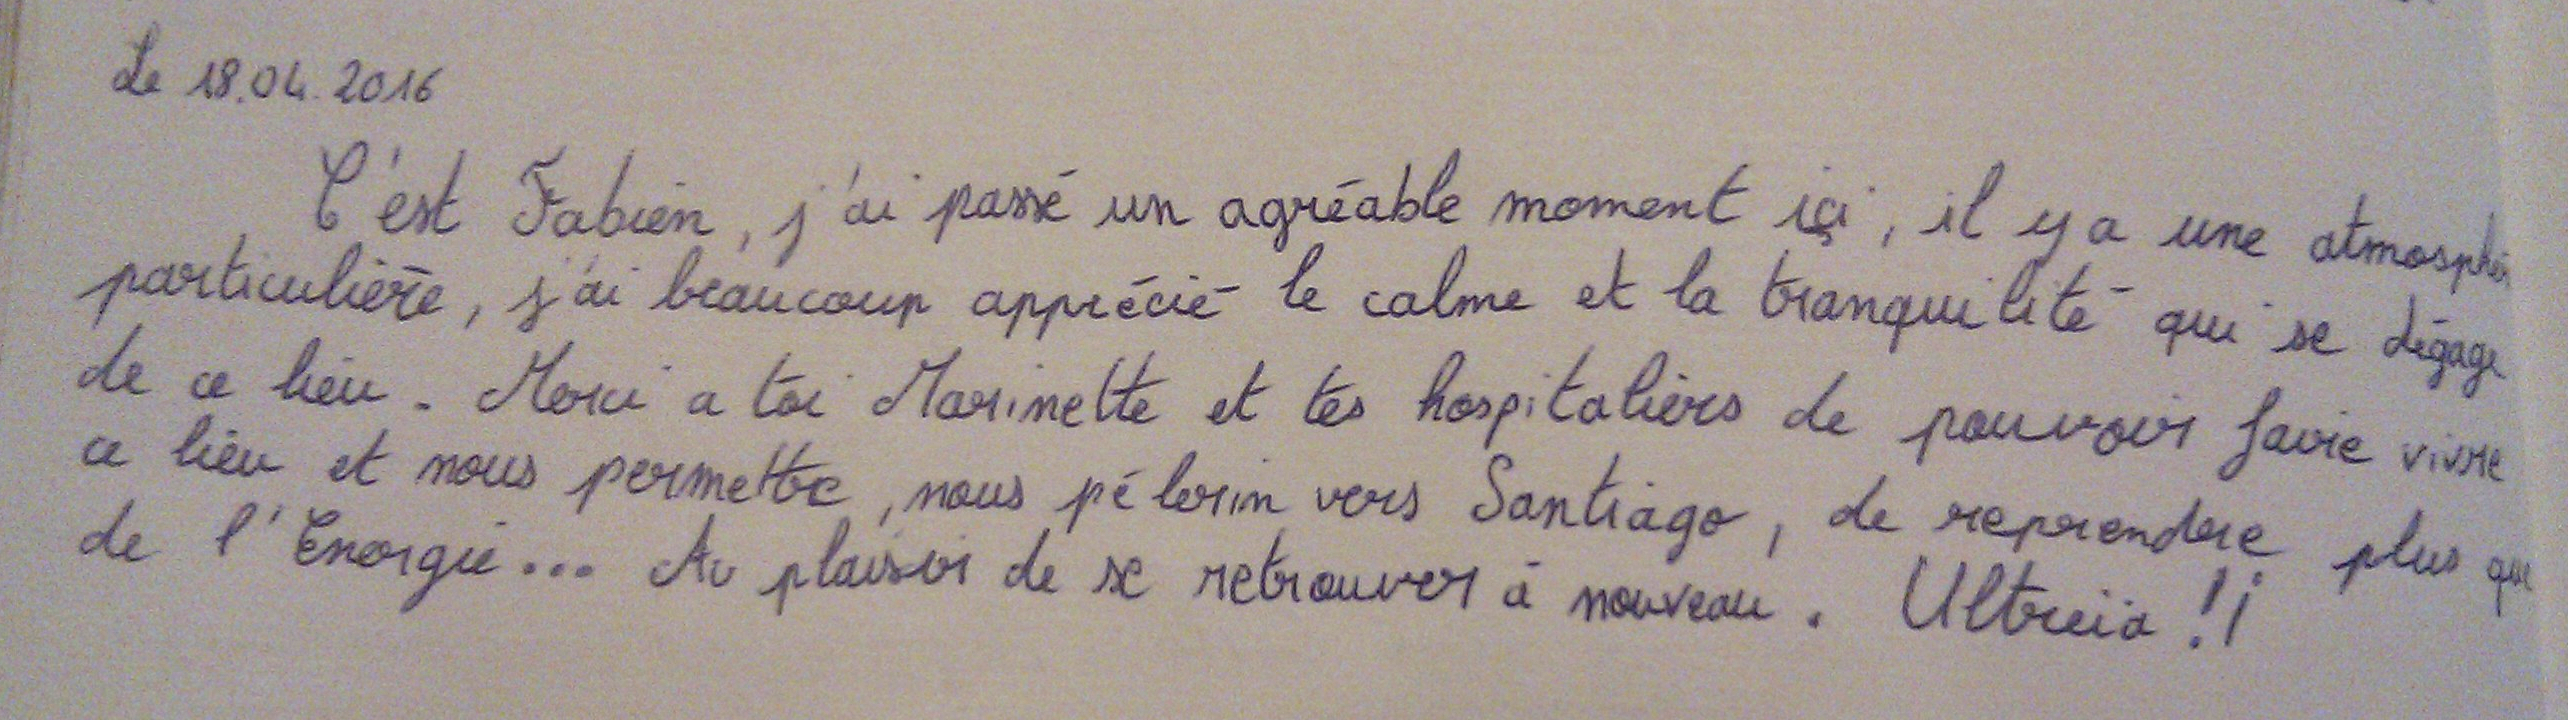 Le 18.04.2016
C'est Fabien, j'ai passé un agréable moment içi, il y a une atmosphè
particulière, j'ai beaucoup apprécié le calme et la tranquilité qui se dégage
de ce lieu. Merci a toi Marinette et tes hospitaliers de pouvoir faire vivre
ce lieu et nous permettre, nous pélerin vers Santiago, de reprendre plus que
de l'Energie... Au plaisir de se retrouver à nouveau. Ultreïa !¡